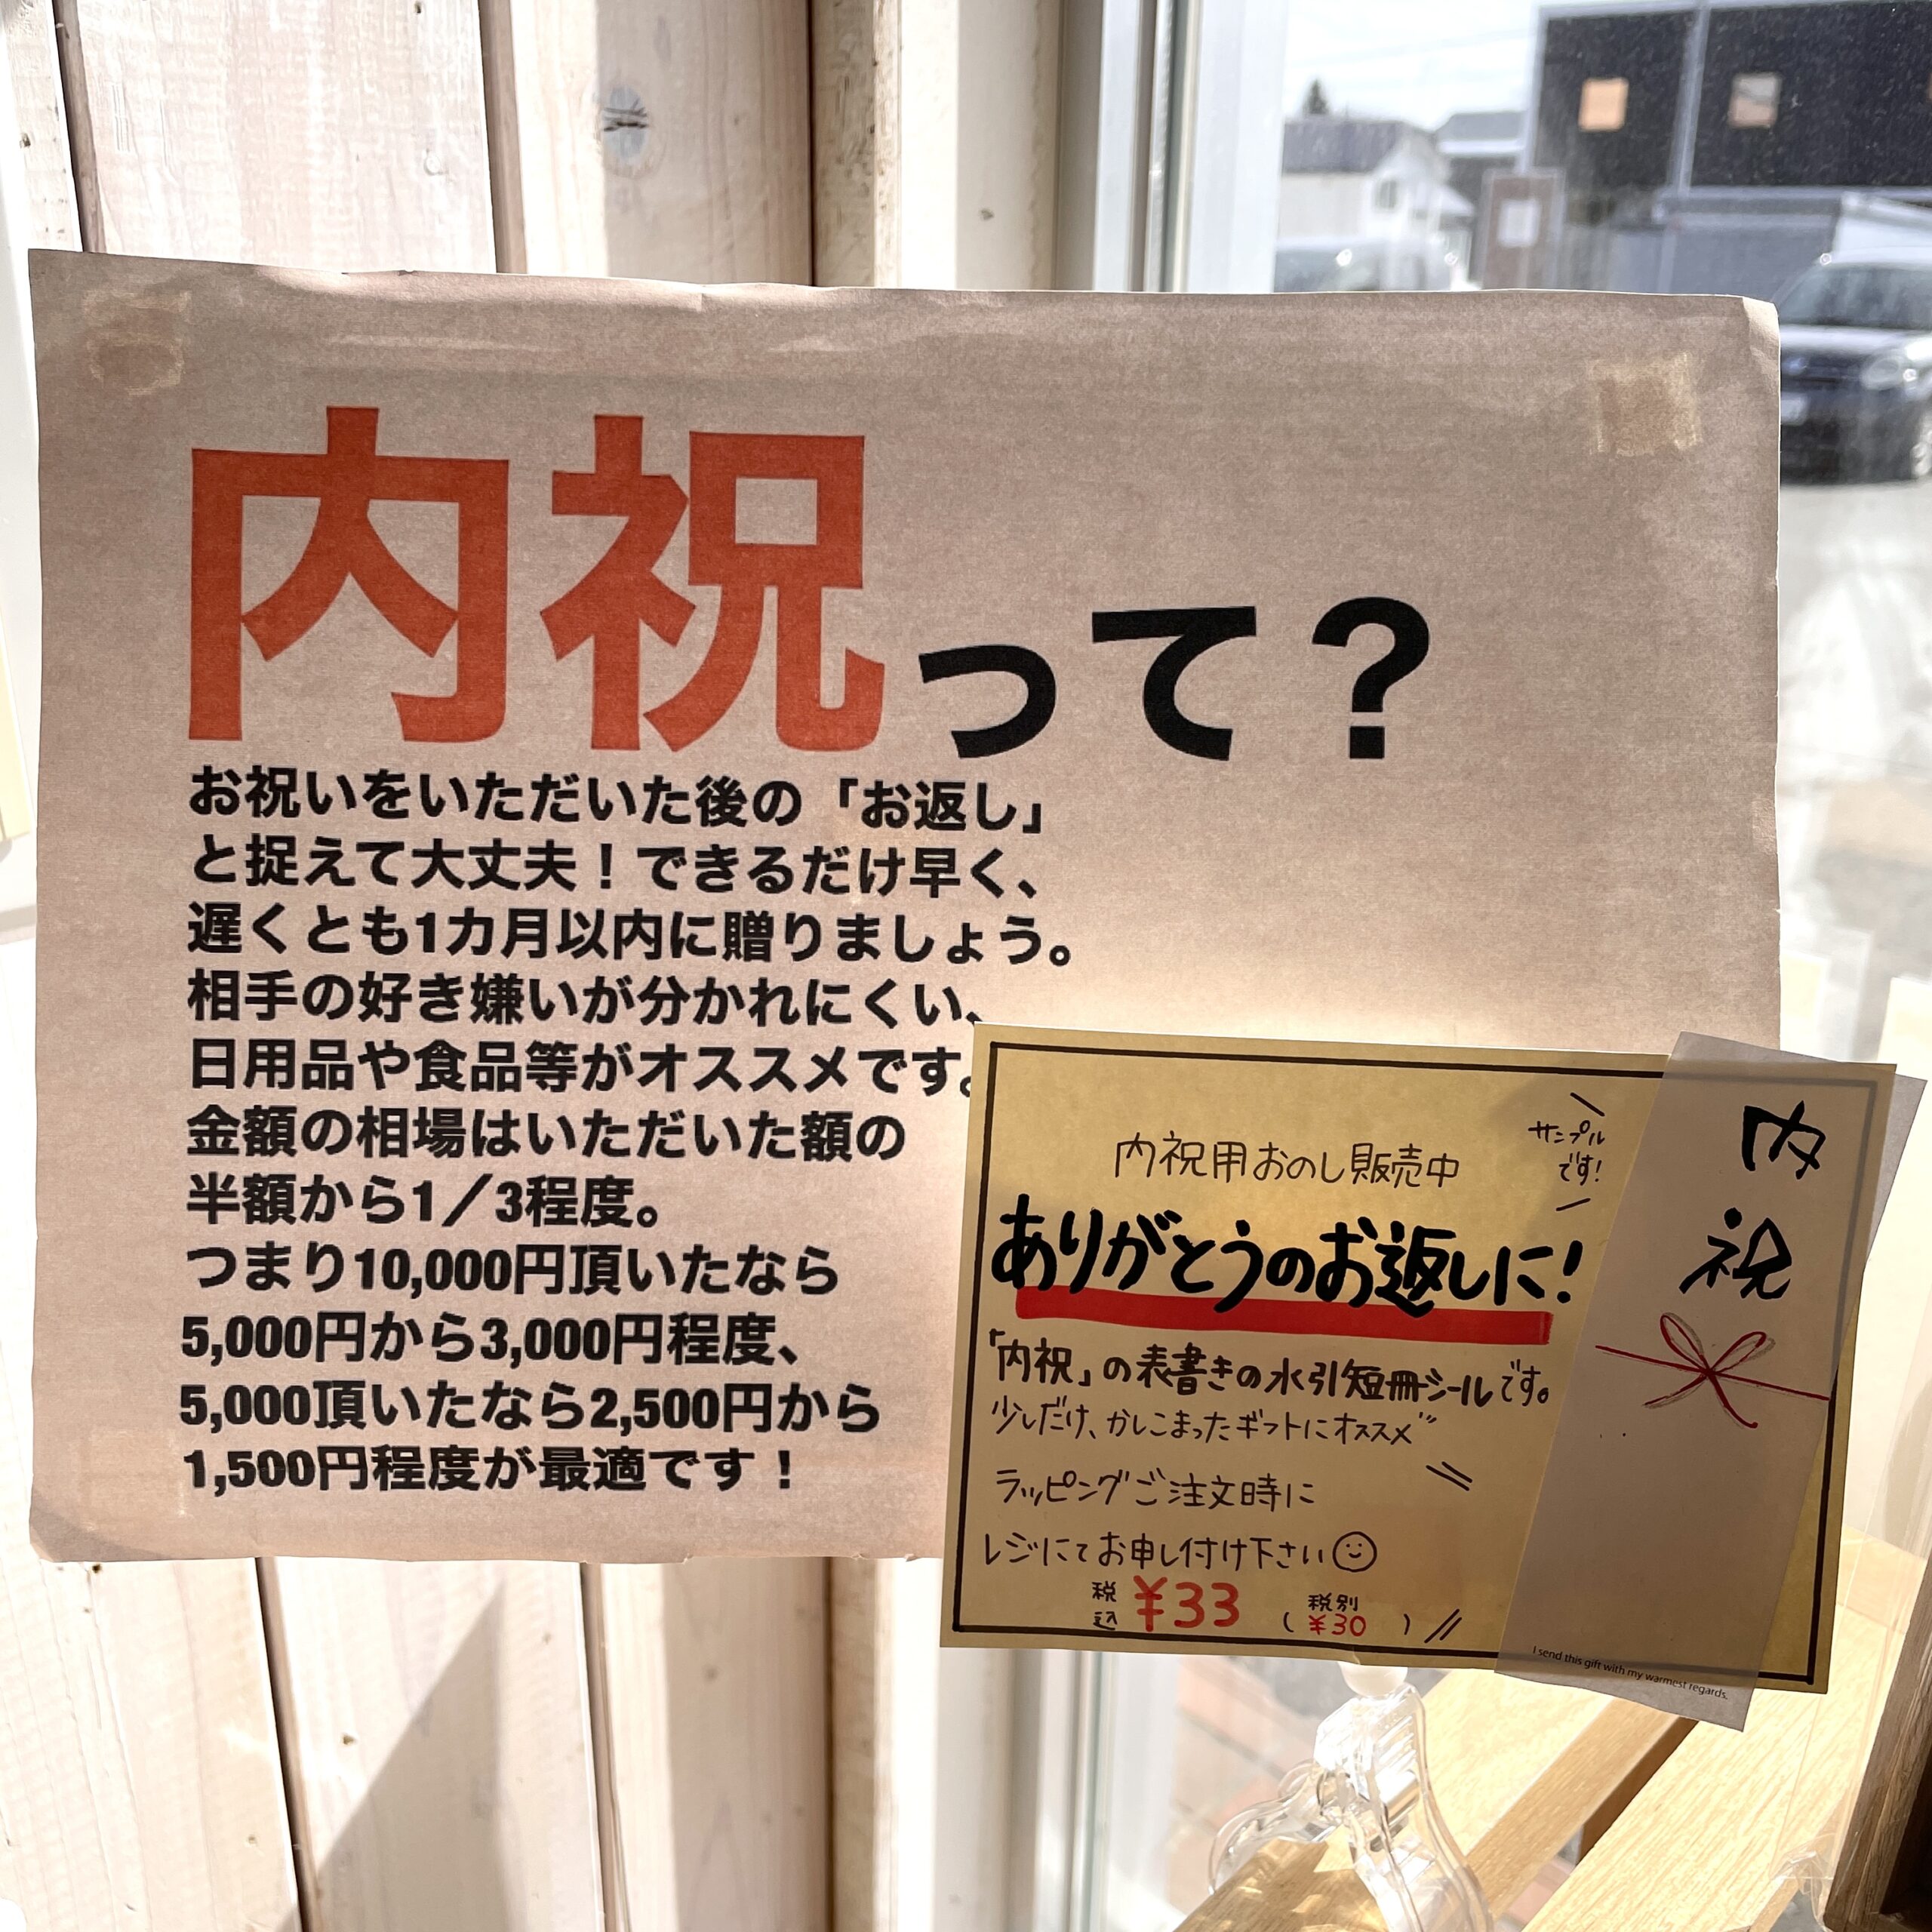 内祝って？
お祝いをいただいた後の「お返し」
と捉えて大丈夫！できるだけ早く、
遅くとも1カ月以内に贈りましょう。
相手の好き嫌いが分かれにくい、
日用品や食品等がオススメです。
金額の相場はいただいた額の
半額から1／3程度。
つまり10,000円頂いたなら
5,000円から3,000円程度、
5,000頂いたなら2,500円から
1,500円程度が最適です！
内祝用おのし販売中
ありがとうのお返しに!
「内祝」の表書きの水引短冊シールです。
少しだけ、かしこまったギフトにオススメ
ラッピングご注文時に
レジにてお申し付け下さい
税込 ¥33 (税別 ¥30)
サンプル
です!
内祝
I send this gift with my warmest regards.